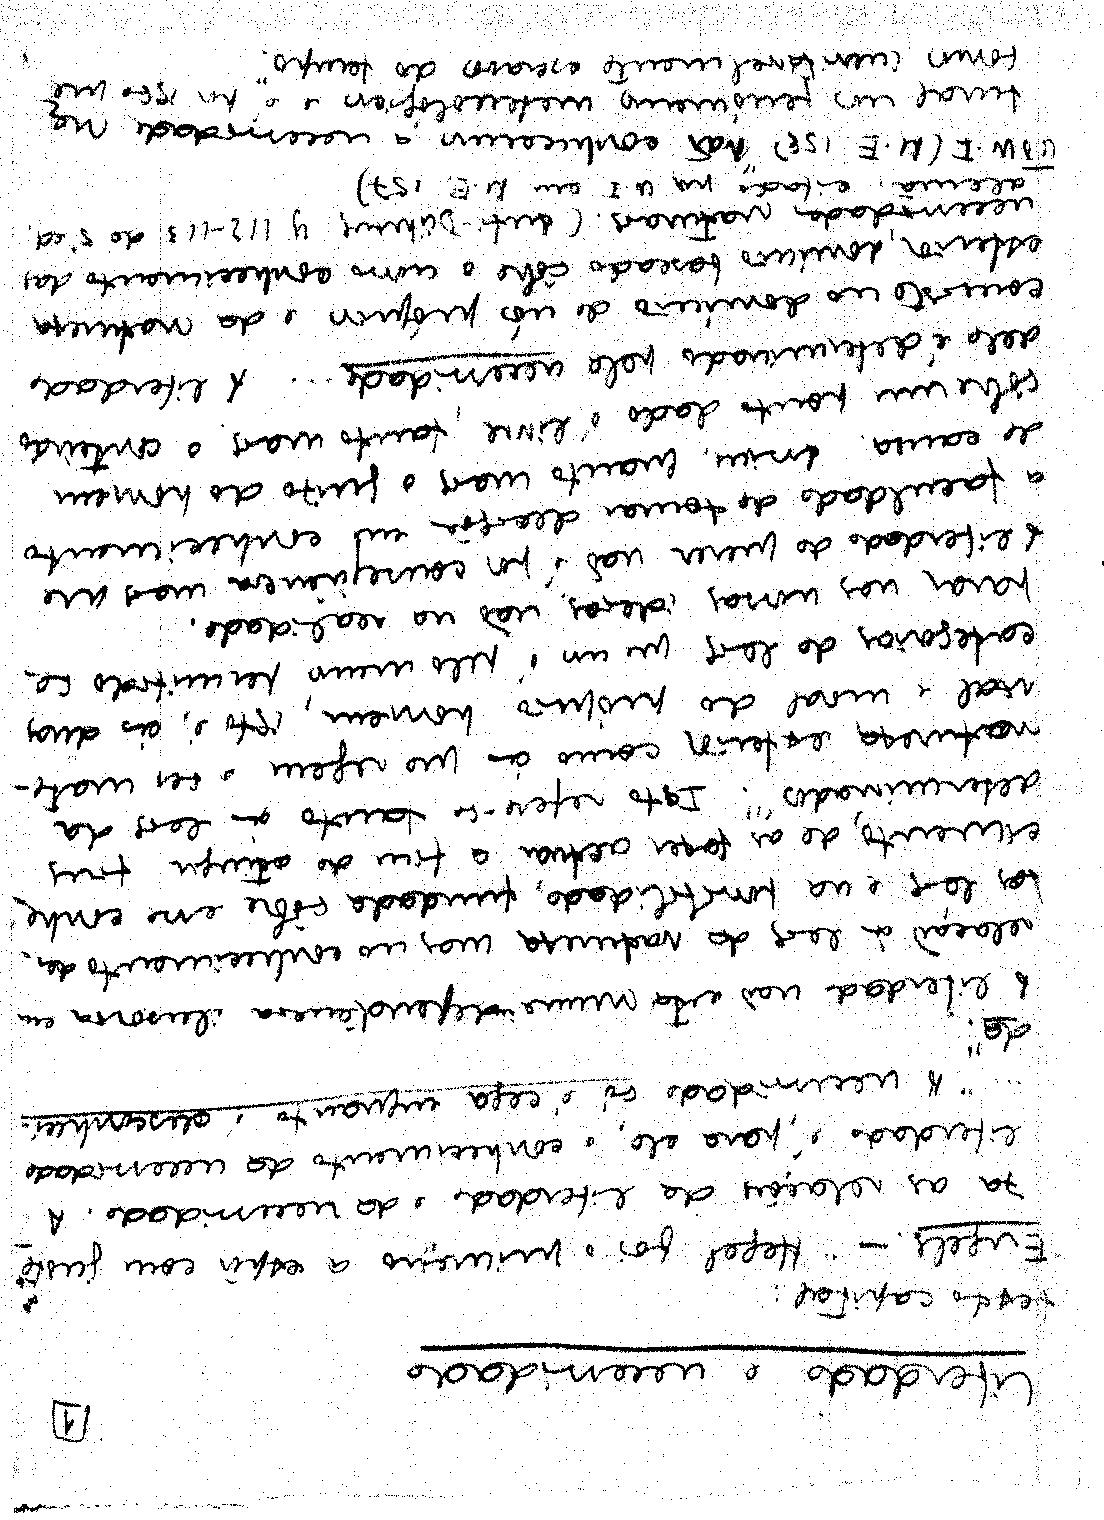 1
Liberdade e necessidade
neste capital:
Engels — "Hegel foi o primeiro a expôr com juste-
za as relações da liberdade e da necessidade. A
liberdade é, para ele, o conhecimento da necessidade
... "A necessidade só é cega enquanto é desconheci-
da".
A liberdade não está numa independência ilusória em
relação às leis da natureza mas no conhecimento des-
tas leis e na possibilidade, fundada sôbre esse conhe-
cimento, de as fazer actuar a fim de atingir fins
determinados". Isto refere-se tanto às leis da
natureza exterior como às que regem o ser mate-
rial e moral do próprio homem, isto é, às duas
categorias de leis que um é pelo menos permitido se-
parar nas nossas ideias, não na realidade.
A liberdade do querer não é por consequência mais que
a faculdade de tomar decisões em conhecimento
de causa. Assim, quanto mais o juízo do homem
sôbre um ponto dado é livre, tanto mais o conteúdo
dele é determinado pela necessidade... A liberdade
consiste no domínio de nós próprios e da natureza
exterior, domínio baseado sôbre o nosso conhecimento das
necessidades naturais. (Anti-Dühring p 112-113 da 5ª ed.
alemã, citado na U I em M.E. 157)
M.E. 158) não conhecem a necessidade na-
tural um fenómeno e é por isso que
somos inevitavelmente escravos do tempo."